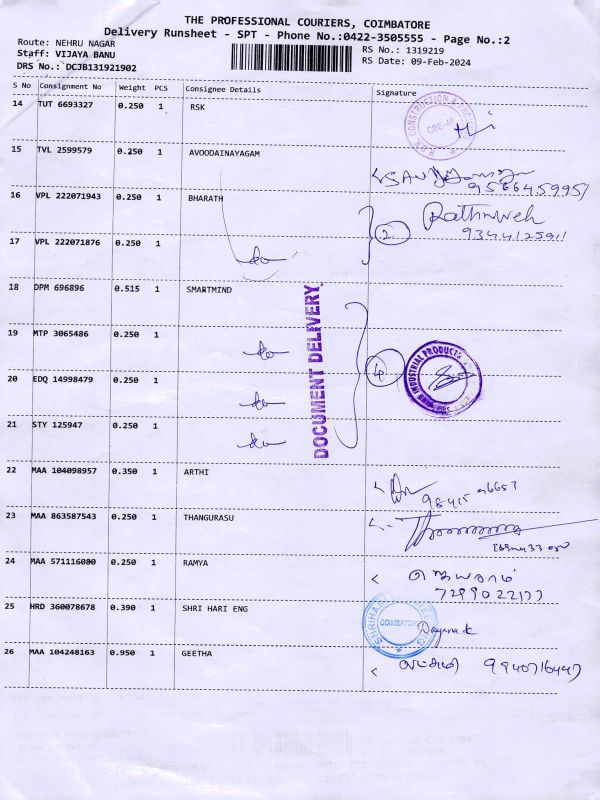 THE PROFESSIONAL COURIERS, COIMBATORE
Delivery Runsheet - SPT - Phone No.:0422-3505555 - Page No.:2
Route: NEHRU NAGAR
Staff: VIJAYA BANU
DRS No.: DCJB131921902
RS No.: 1319219
RS Date: 09-Feb-2024
S No Consignment No Weight PCS Consignee Details Signature
14 TUT 6693327 0.250 1 RSK
15 TVL 2599579 0.250 1 AVOODAINAYAGAM
9566459951
16 VPL 222071943 0.250 1 BHARATH
2
9344125911
17 VPL 222071876 0.250 1 do
18 DPM 696896 0.515 1 SMARTMIND
DOCUMENT DELIVERY
19 MTP 3065486 0.250 1 do
4
INDUSTRIAL PRODUCTS
20 EDQ 14998479 0.250 1 do
21 STY 125947 0.250 1 do
22 MAA 104098957 0.350 1 ARTHI
23 MAA 863587543 0.250 1 THANGURASU
24 MAA 571116080 0.250 1 RAMYA
ஜெயராம்
25 HRD 360078678 0.390 1 SHRI HARI ENG
COIMBATORE
26 MAA 104248163 0.950 1 GEETHA
9940716447